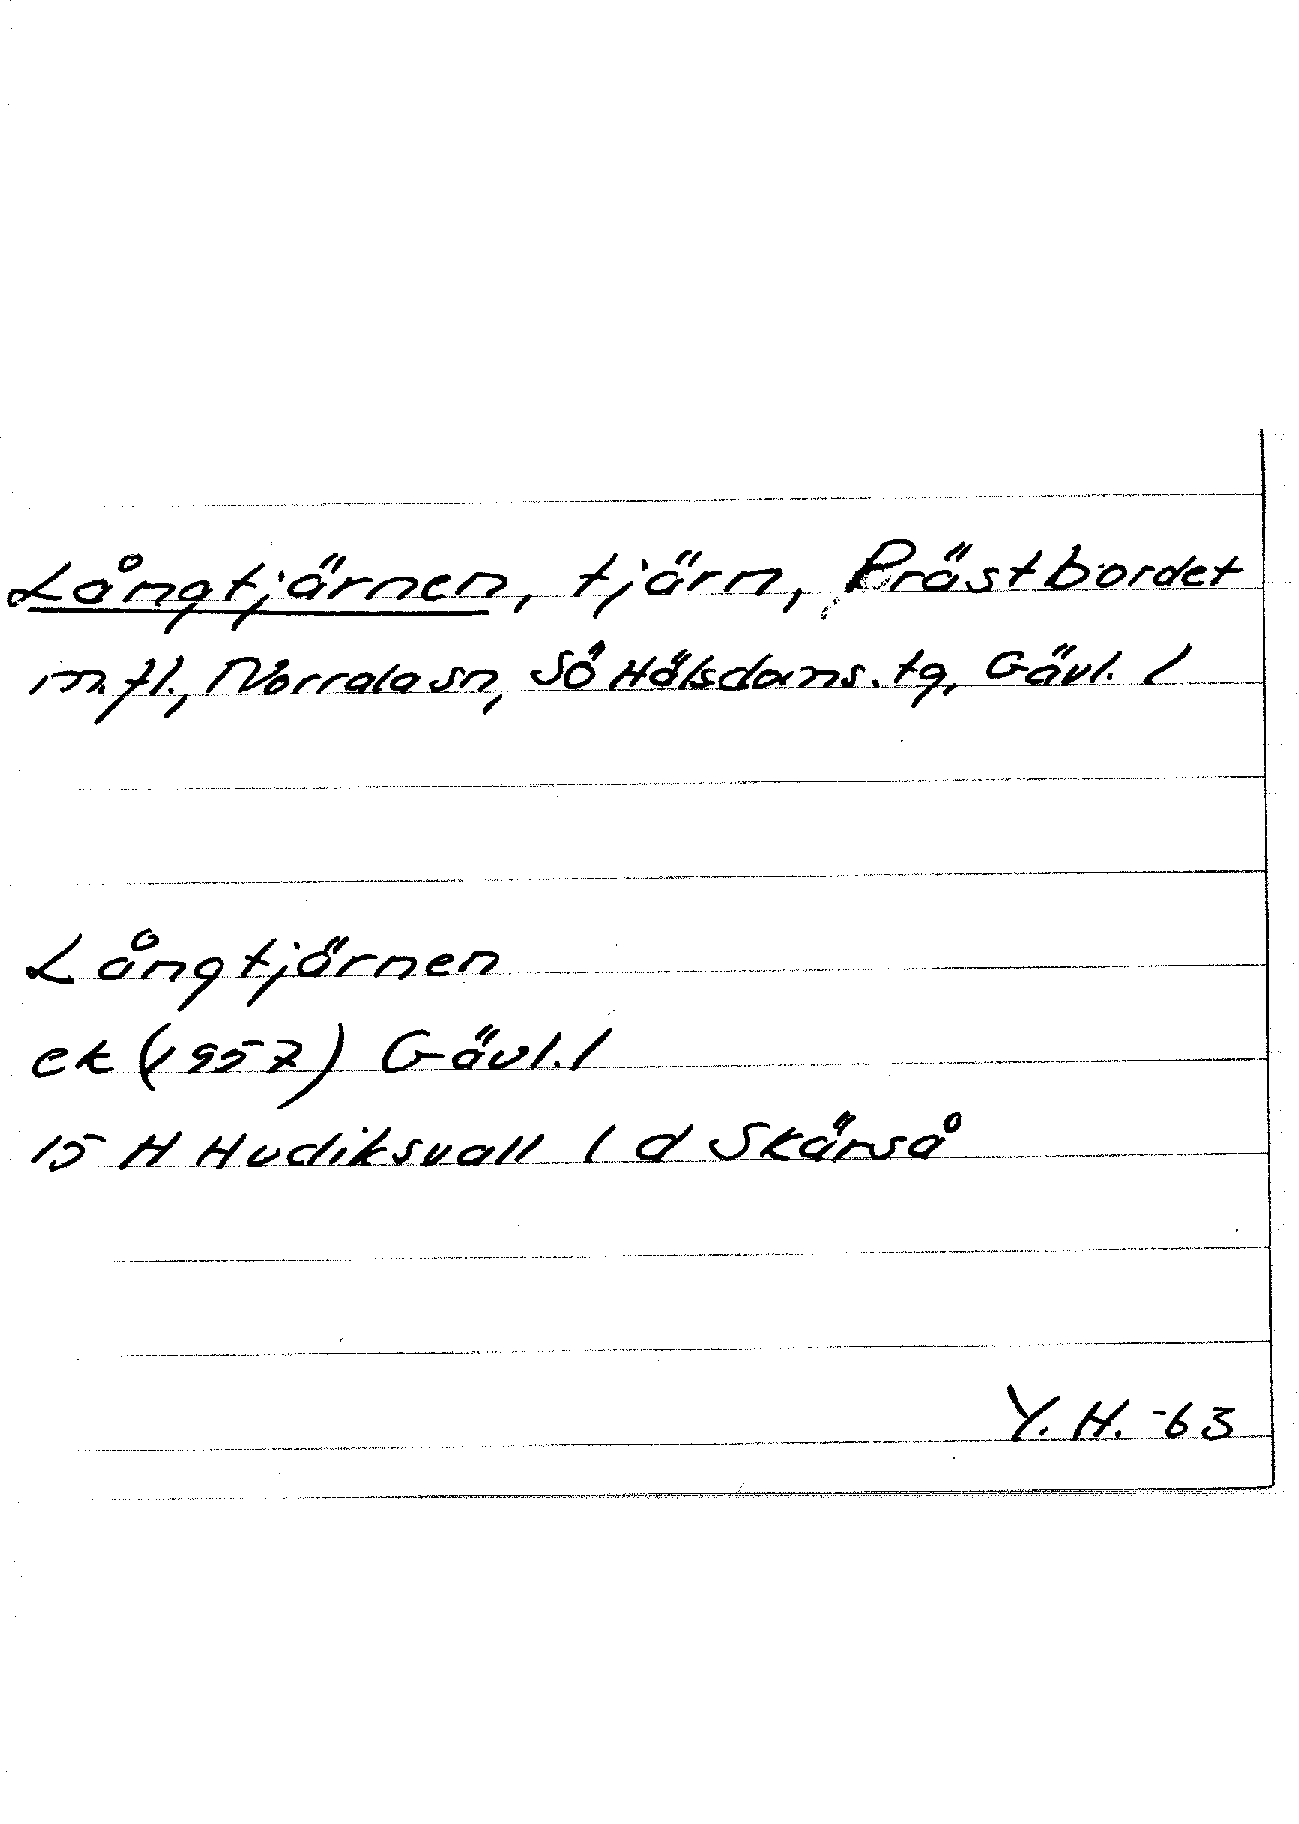 Långtjärnen, tjärn, Prästbordet
m.fl., Norrala sn, Sö Hälsdoms. tg, Gävl. l
Långtjärnen
ek (1957) Gävl. l
15 H Hudiksvall 1 d Skärså
Y. H. -63